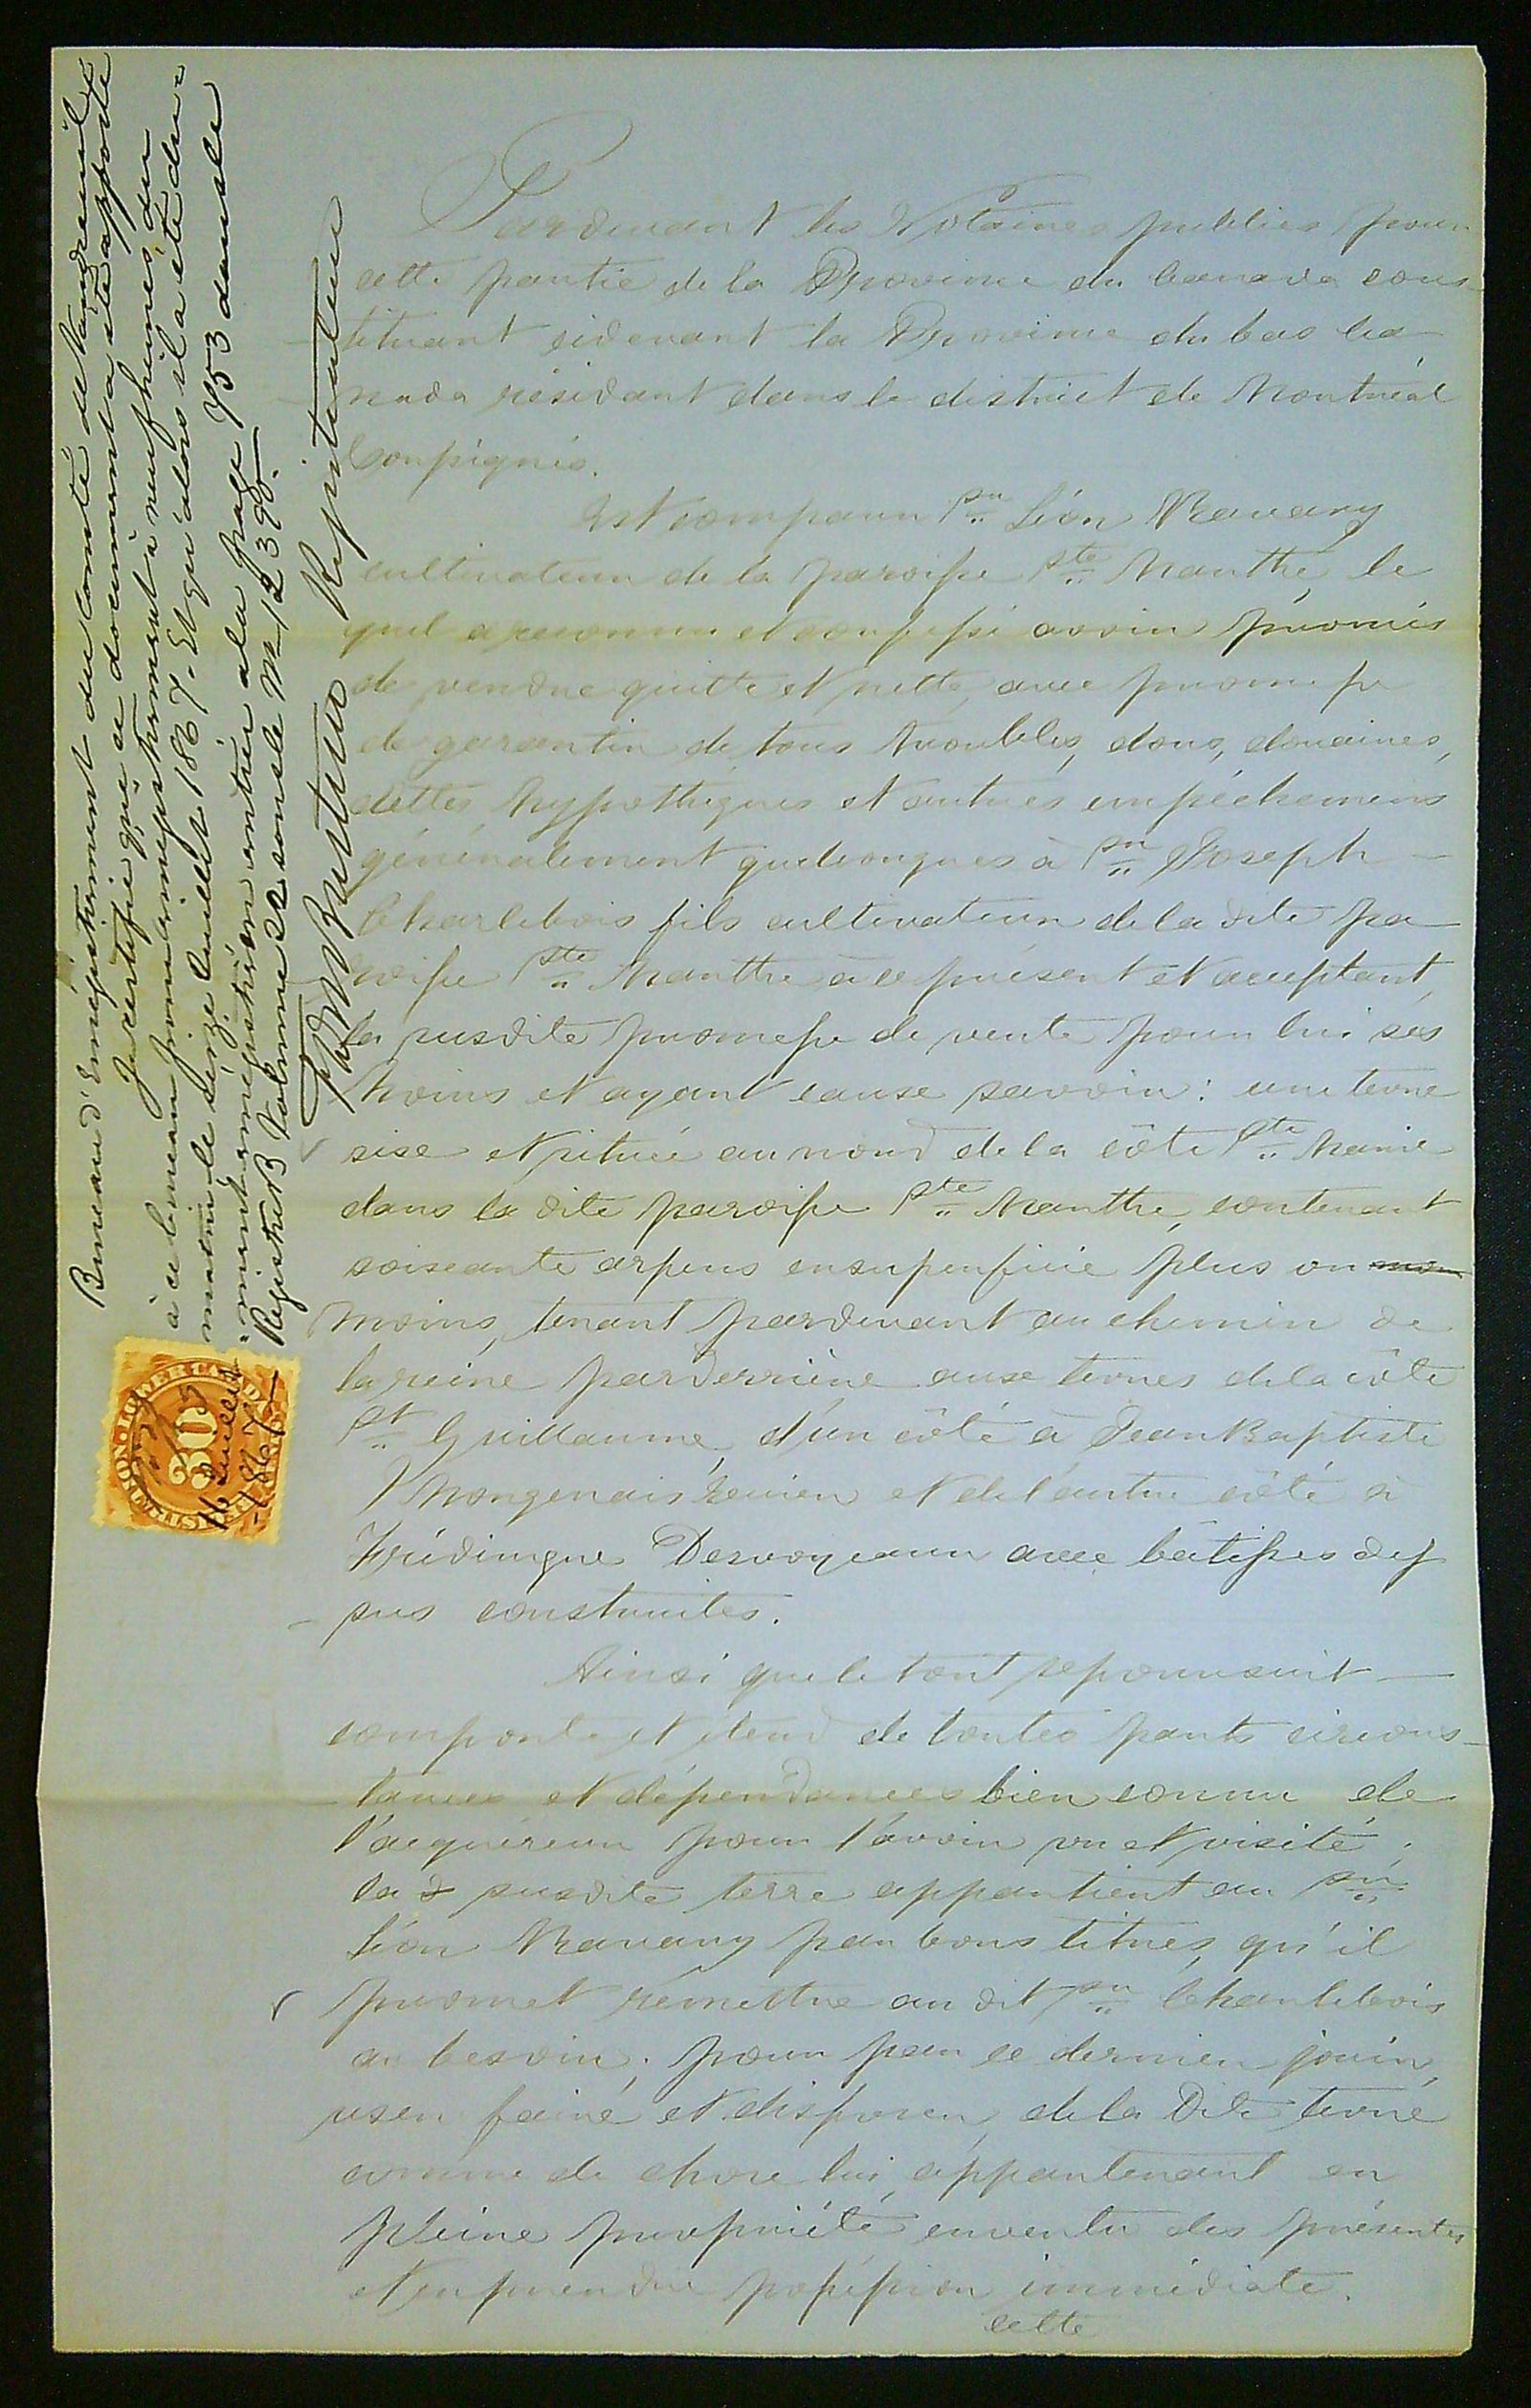 Pardevant les Notaires publics pour
cette partie de la Province du Canada cons
tituant cidevant la Province du bas Ca
nada résidant dans le district de Montréal
soussignés.
Est comparu Sr. Léon Ravary
cultivateur de la paroisse Ste. Marthe, le
quel a reconnu et confessé avoir promis
de vendre quitte et nette, avec promesse
de garantir de tous troubles, dons, douaires,
dettes, hypothèques et autres empêchemens
généralement quelconques à Sr. Joseph
Charlebois fils cultivateur de la dite pa
roisse Ste. Marthe à ce présent et acceptant,
la susdite promesse de vente pour lui ses
hoirs et ayant cause savoir : une terre
sise et située au nord de la côte Ste. Marie
dans la dite paroisse Ste. Marthe, contenant
soixante arpens en superficie plus ou
moins, tenant pardevant au chemin de
la reine par derrière aux terres de la côte
St. Guillaume, d'un côté à Jean Baptiste
Mongenais Ecuier et de l'autre côté à
Frédérique Desvoyeaux avec bâtisses des
sus construites.
Ainsi que le tout se poursuit
comporte et étend de toutes parts circons
tances et dépendances bien connu de
l'acquéreur pour l'avoir vu et visité ;
la susdite terre appartient au Sr.
Léon Ravary par bons titres, qu'il
promet remettre au dit Sr. Charlebois
au besoin ; pour par ce dernier jouir,
user faire et disposer, de la dite terre
comme de chose lui appartenant en
pleine propriété en vertu des présentes
et en prendre possession immédiate.
cette
Bureau d'Enregistrement du Comté de Vaudreuil
Je certifie que ce document a été apporté
à ce bureau pour enregistrement à neuf heures du
matin le seize Juillet 1867. Et qui alors il a été due
ment enregistré en entier a la page 753 dans le
Registre B Volume 22 sous le No 12398.
Registrateur
30
16 Juillet
1867